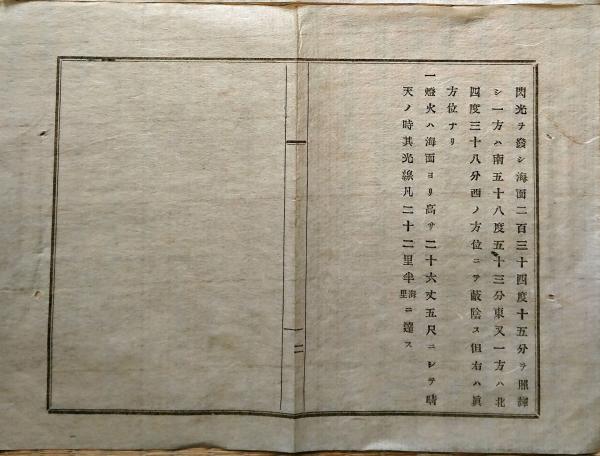 閃光ヲ發シ海面二百三十四度十五分ヲ照輝
シ一方ハ南五十八度五十三分東又一方ハ北
四度三十八分西ノ方位ニヲ蔽陰ス但右ハ眞
方位ナリ
一燈火ハ海面ヨリ高サ二十六丈五尺ニシテ晴
天ノ時其光線凡二十二里半海里ニ達ス
二